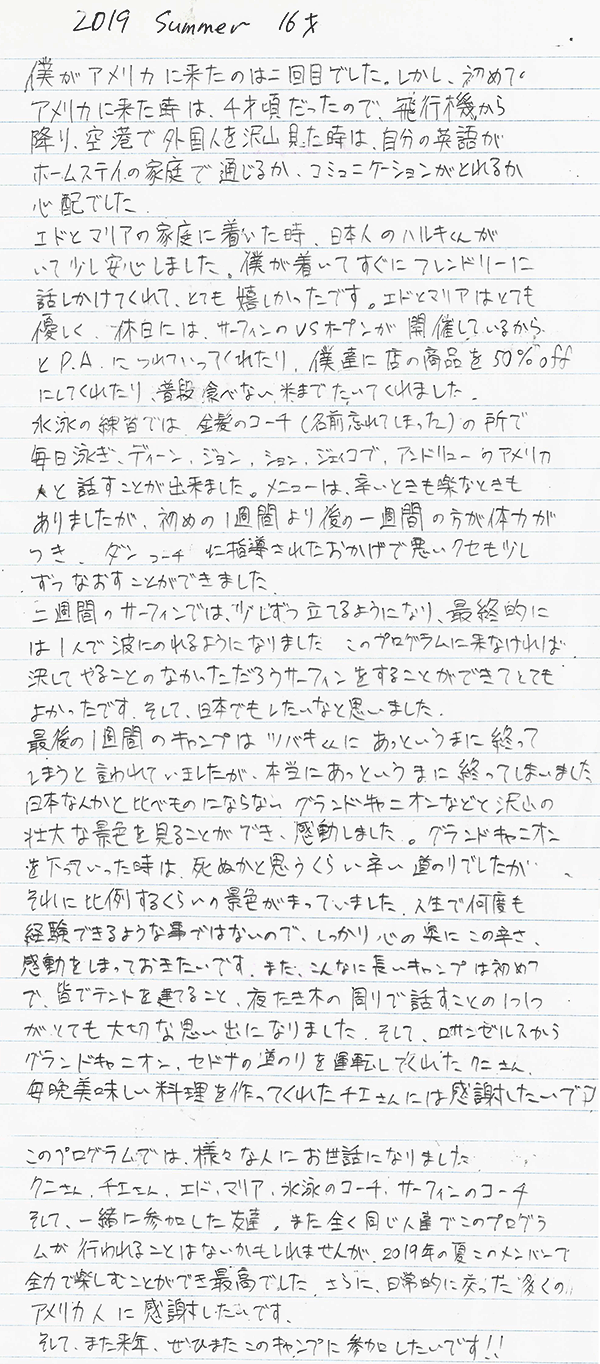 2019 Summer 16才
僕がアメリカに来たのは二回目でした。しかし、初めて
アメリカに来た時は、4才頃だったので、飛行機から
降り、空港で外国人を沢山見た時は、自分の英語が
ホームステイの家庭で通じるか、コミュニケーションがとれるか
心配でした.
エドとマリアの家庭に着いた時、日本人のハルキくんが
いて少し安心しました。僕が着いてすぐにフレンドリーに
話しかけてくれて、とても嬉しかったです。エドとマリアはとても
優しく、休日には、サーフィンのUSオープンが開催しているから
とP.A.につれていってくれたり、僕達に店の商品を50%off
にしてくれたり、普段食べない米までたいてくれました.
水泳の練習では、金髪のコーチ(名前忘れてしまった)の所で
毎日泳ぎ、ディーン、ジョン、ション、ジェイコブ、アンドリューのアメリカ
人と話すことが出来ました。メニューは、辛いときも楽なときも
ありましたが、初めの1週間より後の一週間の方が体力が
つき、ダンコーチに指導されたおかげで悪いクセも少し
ずつなおすことができました.
二週間のサーフィンでは、少しずつ立てるようになり、最終的に
は1人で波にのれるようになりました このプログラムに来なければ
決してやることのなかいただろうサーフィンをすることができてとても
よかったです. そして、日本でもしたいなと思いました.
最後の1週間のキャンプはツバキくんにあっというまに終って
しまうと言われていましたが、本当にあっというまに終ってしまいました
日本なんかと比べものにならないグランドキャニオンなどと沢山の
壮大な景色を見ることができ、感動しました。グランドキャニオン
を下っていった時は、死ぬかと思うくらい辛い道のりでしたが、
それに比例するくらいの景色がまっていました. 人生で何度も
経験できるような事ではないので、しっかり心の奥にこの辛さ、
感動をしまっておきたいです. また、こんなに長いキャンプは初めて
で、皆でテントを建てること、夜たき木の周りで話すことの1つ1つ
がとても大切な思い出になりました. そして、ロサンゼルスから
グランドキャニオン、セドナの道のりを運転してくれたクニさん、
毎晩美味しい料理を作ってくれたチエさんには感謝したいです
このプログラムでは、様々な人にお世話になりました.
クニさん、チエさん、エド、マリア、水泳のコーチ、サーフィンのコーチ
そして、一緒に参加した友達. また全く同じ人達でこのプログラ
ムが行われることはないかもしれませんが、2019年の夏このメンバーで
全力で楽しむことができ最高でした. さらに、日常的に交った多くの
アメリカ人に感謝したいです.
そして、また来年、ぜひまたこのキャンプに参加したいです!!